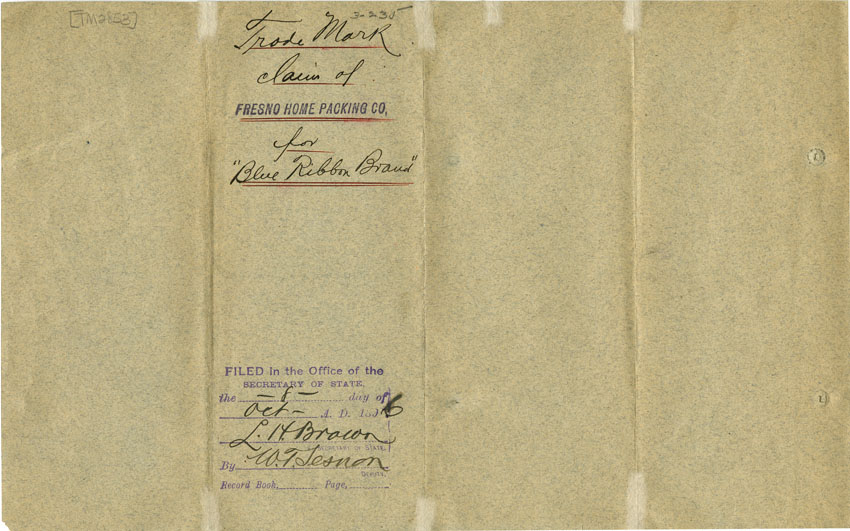 [TM2853]
3-235
Trade Mark
claim of
FRESNO HOME PACKING CO,
for
"Blue Ribbon Brand"
FILED in the Office of the
SECRETARY OF STATE,
the -8- day of
Oct- A. D. 6
L. H. Brown
SECRETARY OF STATE.
By W. T. Sesnon
DEPUTY.
Record Book, Page,